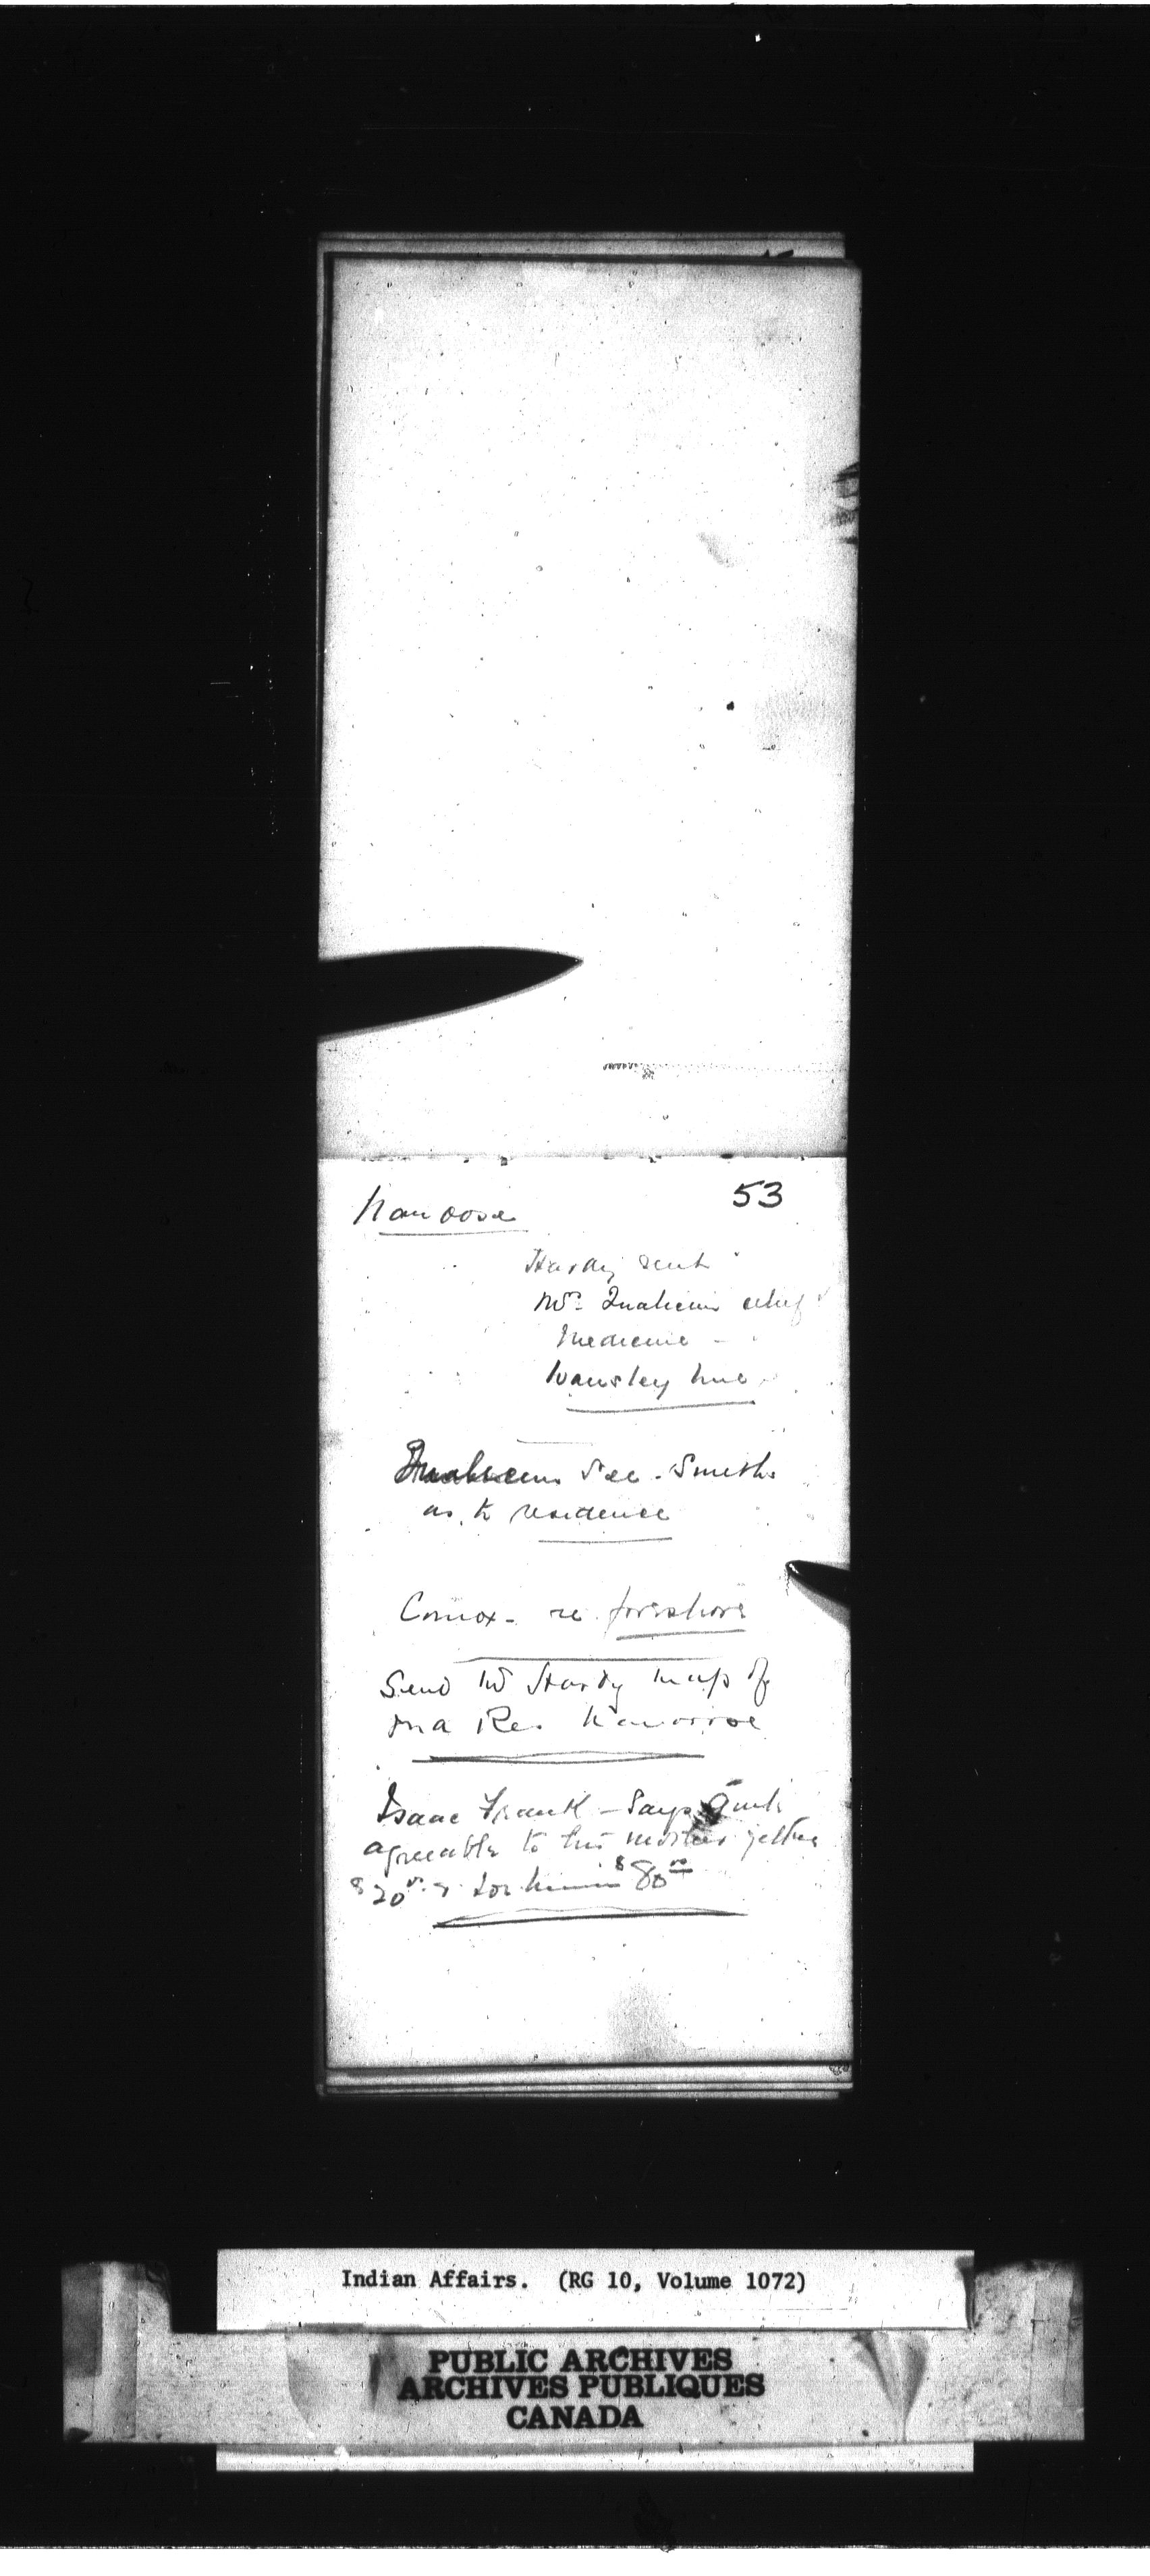 53
Nanoose
Hardy rent
Mrs. Qualicum relief
Medicine -
Wansley line
Qualicum See. Smith
as to residence
Comox - re foreshore
Send W Hardy map of
Re. Nanoose
Isaac Frank - Says
agreeable to his mother getting
$20 & for him $80
Indian Affairs. (RG 10, Volume 1072)
PUBLIC ARCHIVES
ARCHIVES PUBLIQUES
CANADA